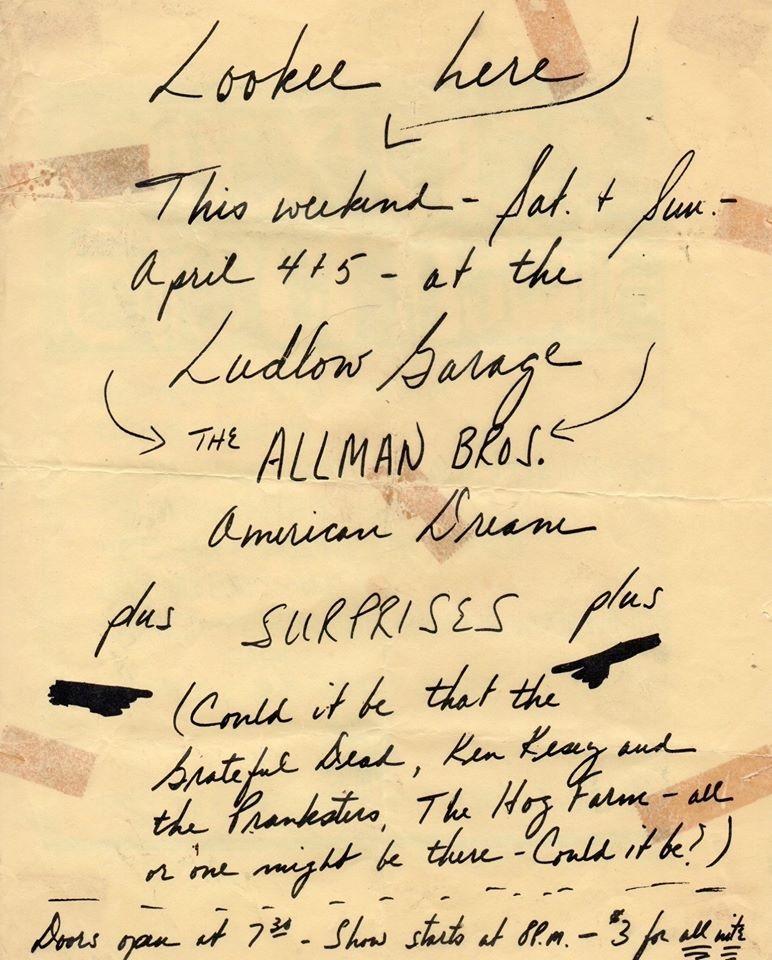 Lookee here
This weekend - Sat. + Sun. -
April 4+5 - at the
Ludlow Garage
THE ALLMAN BROS.
American Dream
plus SURPRISES plus
(Could it be that the
Grateful Dead, Ken Kesey and
the Pranksters, The Hog Farm - all
or one might be there - Could it be?)
Doors open at 7 30 - Show starts at 8 P.m. - $3 for all nite